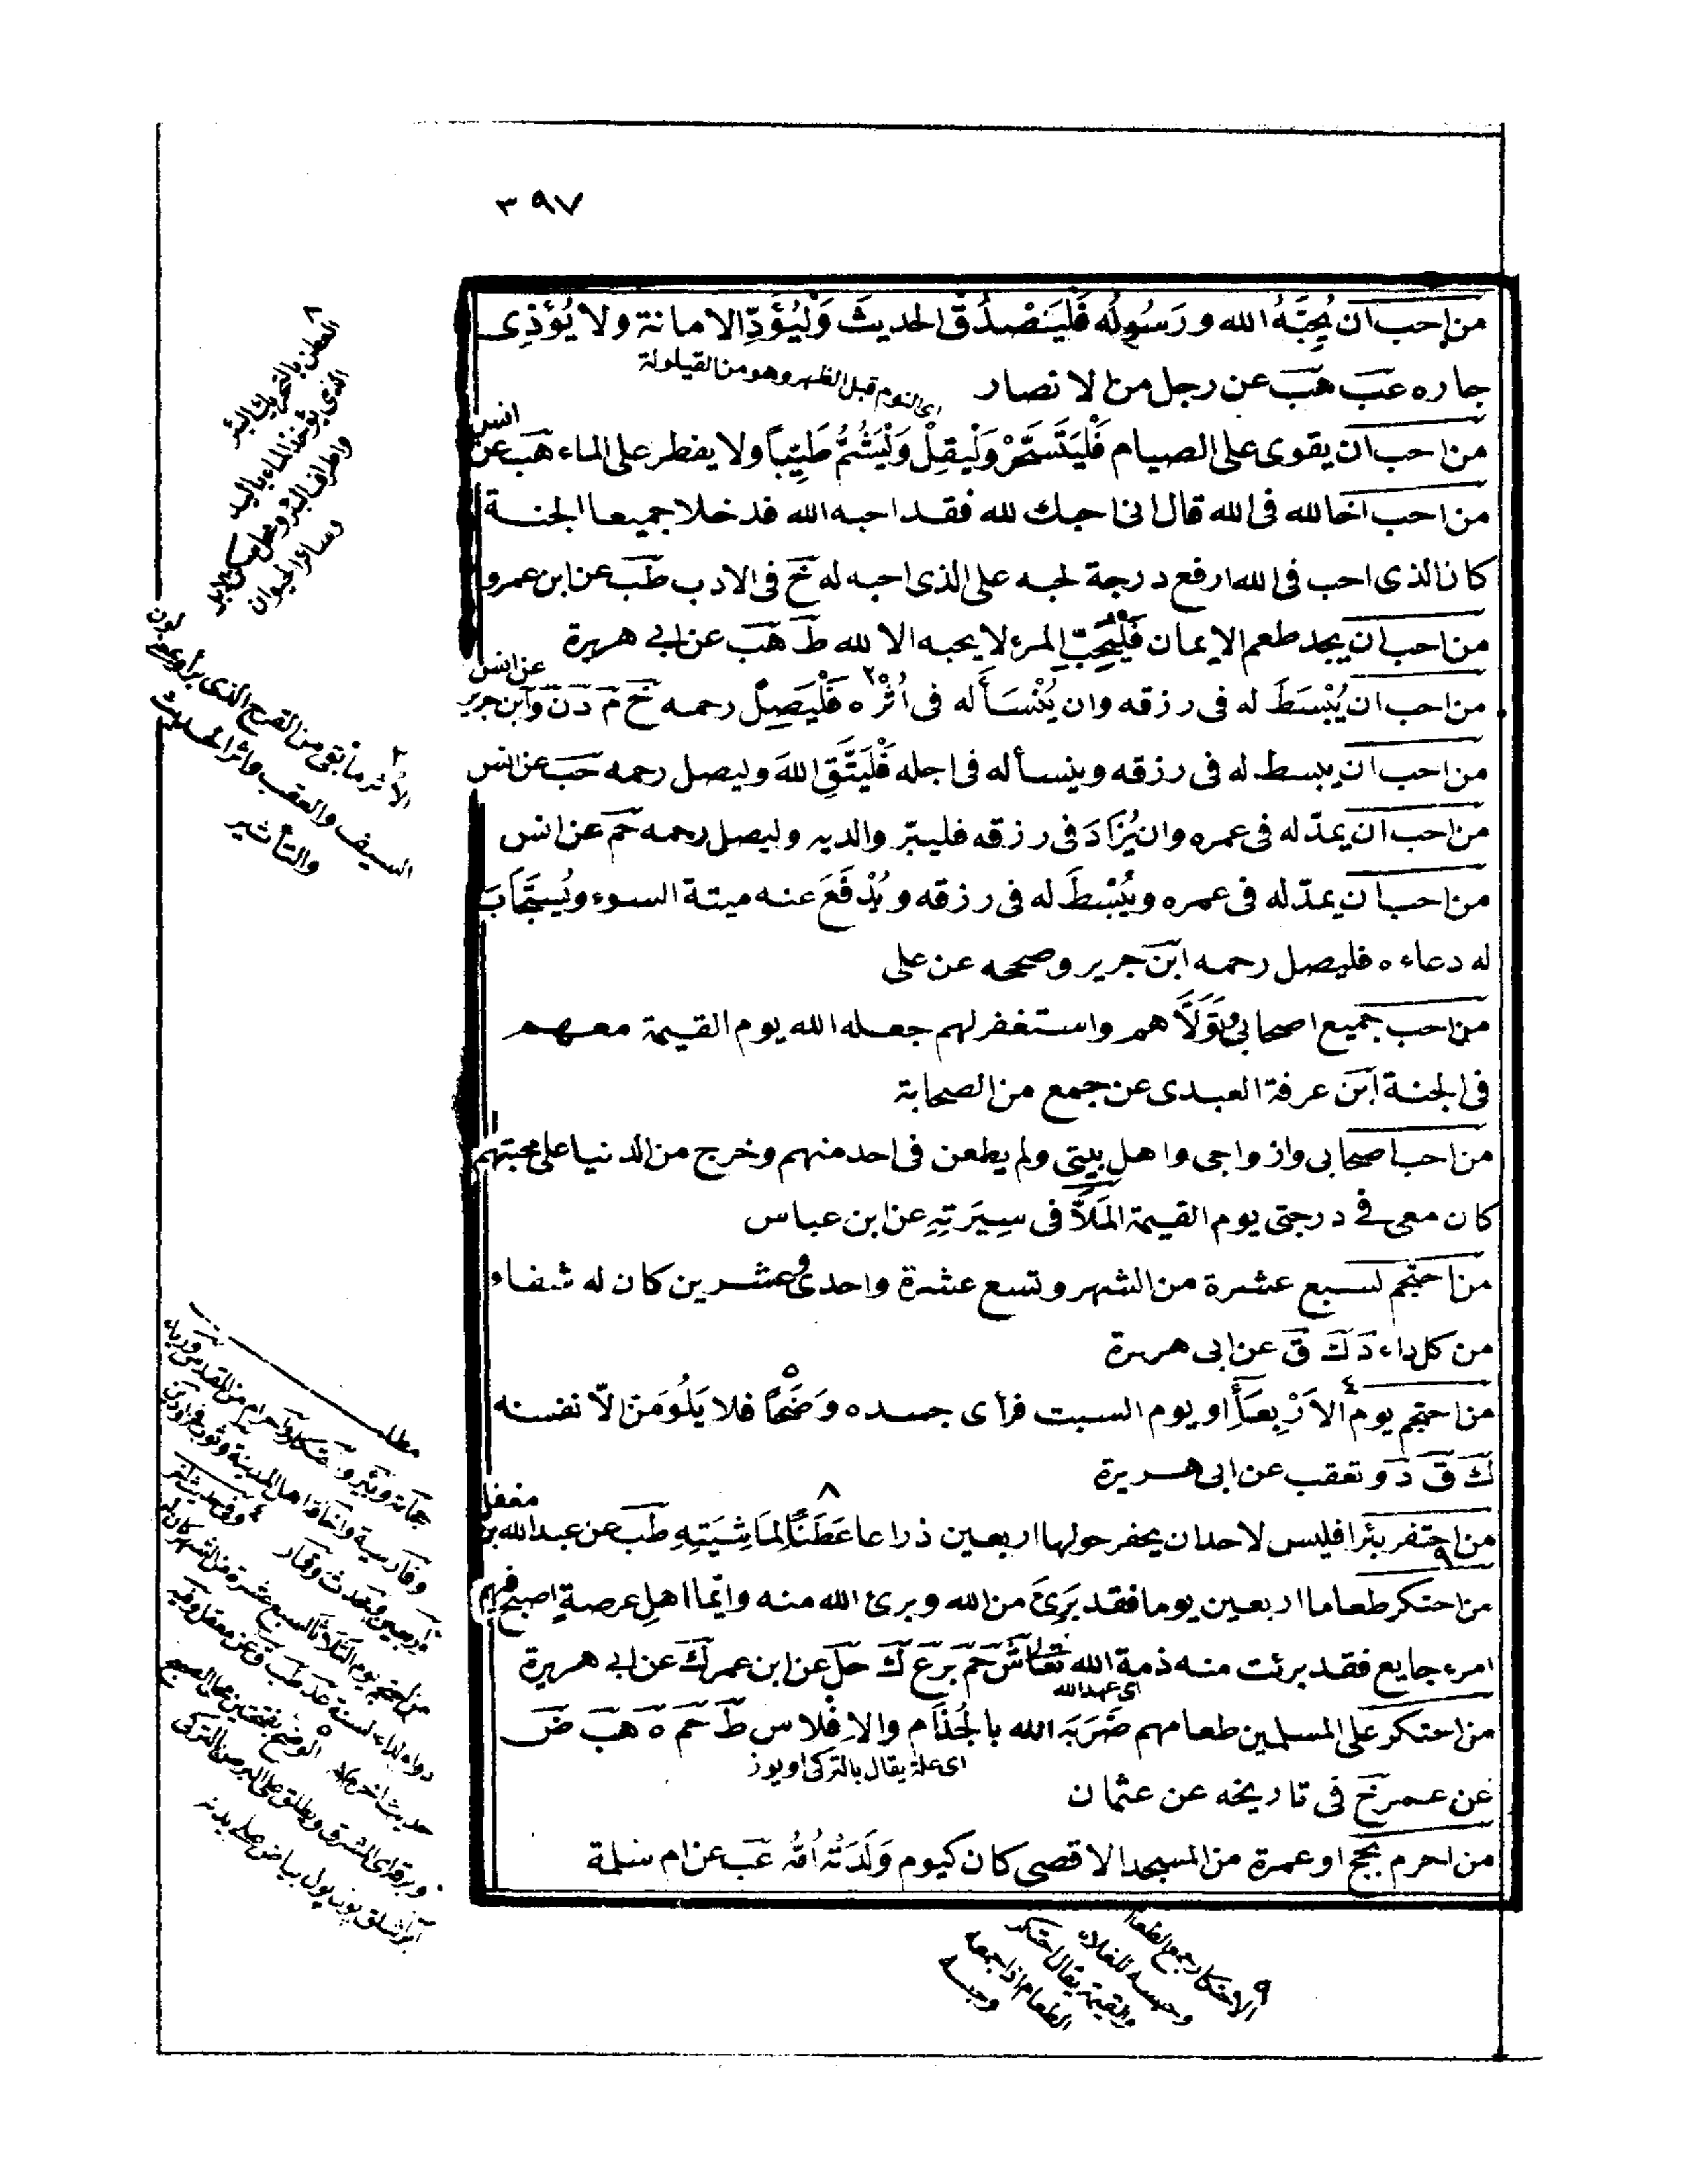 ٣٩٧
من احب ان يُحِبَّهُ الله ورَسُولُه فَلْيَصْدُقْ الحديثَ وَلْيُؤَدِّ الامانة ولا يُؤذِى
جاره عَب هَب عن رجل من الانصار
اى النوم قبل الظهر وهو من القيلولة
من احب ان يقوى على الصيام فَلْيَتَسَحَّرْ وَلْيَقِلْ وَلْيَشُمَّ طَيِّباً ولا يفطر على الماء هَب عن انس
من احب اخا لله فى الله قال انى احبك لله فقد احبه الله فدخلا جميعا الجنة
كان الذى احب فى الله ارفع درجة لحبه على الذى احبه له خَ فى الادب طَب عن ابن عمرو
من احب ان يجد طعم الايمان فَلْيُحِبّ المرء لا يحبه الا لله طَ هَب عن ابى هريرة
من احب ان يُبْسَطَ له فى رزقه وان يُنْسَأَ له فى اُثْرِه فَلْيَصِلْ رحمه خَ مَ دَ نَ وابن جرير عن انس
من احب ان يبسط له فى رزقه وينسأ له فى اجله فَلْيَتَّقِ اللهَ وليصل رحمه حَب عن انس
من احب ان يمدّ له فى عمره وان يُزَادَ فى رزقه فليبرّ والديه وليصل رحمه حَم عن انس
من احب ان يمدّ له فى عمره ويُبْسَطَ له فى رزقه ويُدْفَعَ عنه ميتة السوء ويُستَجَابَ
له دعاءه فليصل رحمه ابن جرير وصححه عن على
من احب جميع اصحابى وتَوَلَّاهم واستغفر لهم جعله الله يوم القيمة معهم
فى الجنة ابن عرفة العبدى عن جمع من الصحابة
من احب اصحابى وازواجى واهل بيتى ولم يطعن فى احد منهم وخرج من الدنيا على محبتهم
كان معى فى درجتى يوم القيمة المَلَأُ فى سِيرَتِهِ عن ابن عباس
من احتجم لسبع عشرة من الشهر وتسع عشرة واحدى وعشرين كان له شفاء
من كل داء دَ كَ قَ عن ابى هريرة
من احتجم يوم الاَرْبِعَاءِ او يوم السبت فرأى جسده وَضَحًا فلا يَلُومَنّ الاّ نفسه
كَ قَ دَ وتعقب عن ابى هريرة
من احتفر بئرا فليس لاحد ان يحفر حولها اربعين ذراعا عَطَنًا لِمَاشِيَتِهِ طَب عن عبدالله بن مغفل
من احتكر طعاما اربعين يوما فقد بَرِئَ من الله وبرئ الله منه وايّما اهل عرصةٍ اصبح فيهم
امرء جايع فقد برئت منه ذمة الله تعالى شَ حَم بَز عَ كَ حَل عن ابن عمر كَ عن ابى هريرة
اى عهد الله
من احتكر على المسلمين طعامهم ضَرَبَه الله بالجُذَامِ والافْلاس طَ حَم ه هَب ضَ
اى علة يقال بالتركى اويوز
عن عمر خَ فى تاريخه عن عثمان
من احرم بحج او عمرة من المسجد الاقصى كان كيوم وَلَدَتْهُ اُمُّهُ عَب عن ام سلمة
٨
العطن بالتحريك البئر
الذى يؤخذ الماء باليد
وسائر الحيوان
٢
الاُثر ما بقى من القرح الذى برأ وعرض لون
السيف والعقب واثر الحديث
والتأثير
مطلب
٤ وفى حديث اخر
من احتجم يوم الثلاثا لسبع عشرة من الشهر كان له
دواء لداء سنة عَد طَب قَ عن معقل وفيه
حديث اخر ٥ الوضح بفتحتين
ويطلق على البرص بالتركى
٩
الاحتكار جمع الطعام
وحبسه للغلاء
يقال احتكر
الطعام اذا جمعه
وحبسه